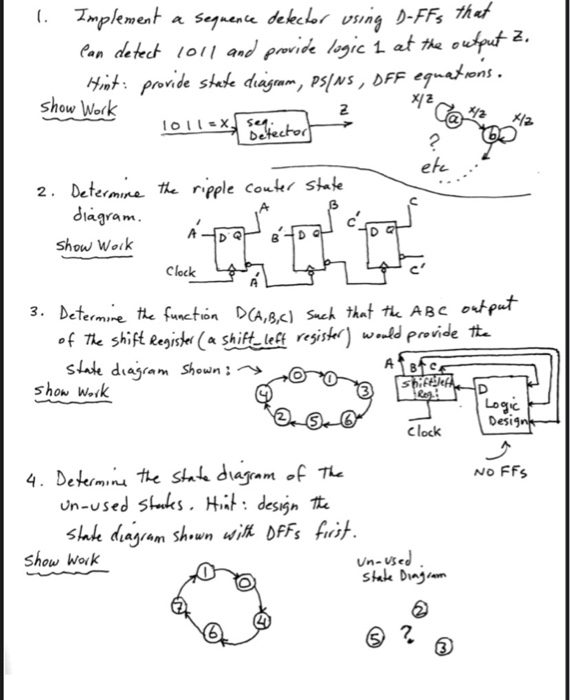 1. Implement a sequence detector using D-FFs that
Can detect 1011 and provide logic 1 at the output Z.
Hint: provide state diagram, PS/NS, DFF equations.
Show Work
1011=X
seq.
Detector
Z
X/Z
a
X/Z
b
X/Z
?
etc.....
2. Determine the ripple couter state
diagram.
Show Work
A' D Q A
B' D Q B
C' D Q C
Clock
A'
C'
3. Determine the function D(A,B,C) such that the ABC output
of the shift Register (a shift_left register) would provide the
state diagram shown:
Show Work
0
1
3
6
5
2
4
A B C
Shift left
Reg.
Clock
D
Logic
Design
NO FFs
4. Determine the state diagram of the
un-used states. Hint: design the
state diagram shown with DFFs first.
Show Work
1
0
4
6
7
Un-used
State Diagram
2
5 ? 3